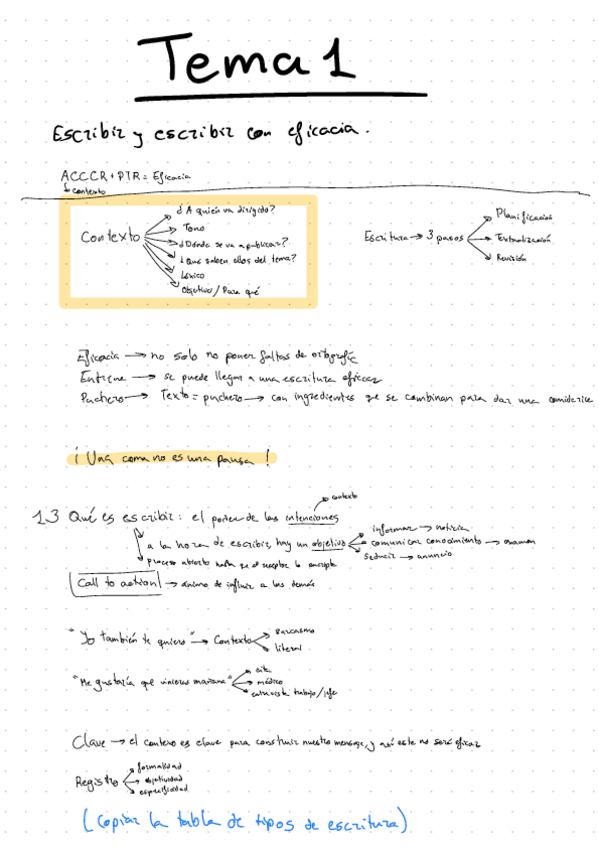 Tema 1
Escribir y escribir con eficacia.
ACCCR + PTR = Eficacia
↳ contexto
Contexto
¿A quién va dirigido?
Tono
¿Dónde se va a publicar?
¿Qué saben ellos del tema?
Léxico
Objetivo / Para qué
Escritura → 3 pasos
Planificación
Textualización
Revisión
Eficacia → no solo no poner faltas de ortografía
Entrene → se puede llegar a una escritura eficaz
Puchero → Texto = puchero → con ingredientes que se combinan para dar una
¡Una coma no es una pausa!
contexto
1.3 Qué es escribir: el poder de las intenciones
a la hora de escribir, hay un objetivo
informar → noticia
comunicar conocimiento → examen
seducir → anuncio
proceso abierto hasta que el receptor lo
Call to action → ánimo de influir a los demás
"Yo también te quiero" → Contexto
sarcasmo
literal
"Me gustaría que vinieras mañana"
cita
médico
entrevista trabajo/jefe
Clave → el contexo es clave para construir nuestro mensaje, y así este no será eficaz
Registro
formalidad
objetividad
especificidad
(copiar la tabla de tipos de escritura)